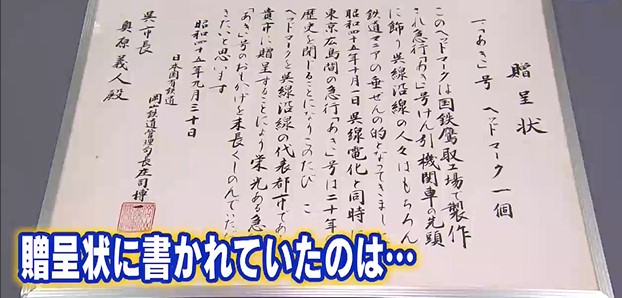 贈呈状
一、「あき」号 ヘッドマーク 一個
このヘッドマークは国鉄鷹取工場で製作
され急行「あき」号けん引機関車の先頭
に飾り呉線沿線の人々はもちろん
鉄道マニアの垂ぜんの的となってきました
昭和四十五年十月一日呉線電化と同時に
東京広島間の急行「あき」号は二十年
歴史を閉じることになりこのたび こ
ヘッドマークを呉線沿線の代表都市であ
貴市に贈呈することにより栄光ある急
「あき」号のおもかげを末長くしのんでいただ
きたいと思います
昭和四十五年九月三十日
日本国有鉄道
岡山鉄道管理局長 庄司
呉市長
奥原義人殿
贈呈状に書かれていたのは…